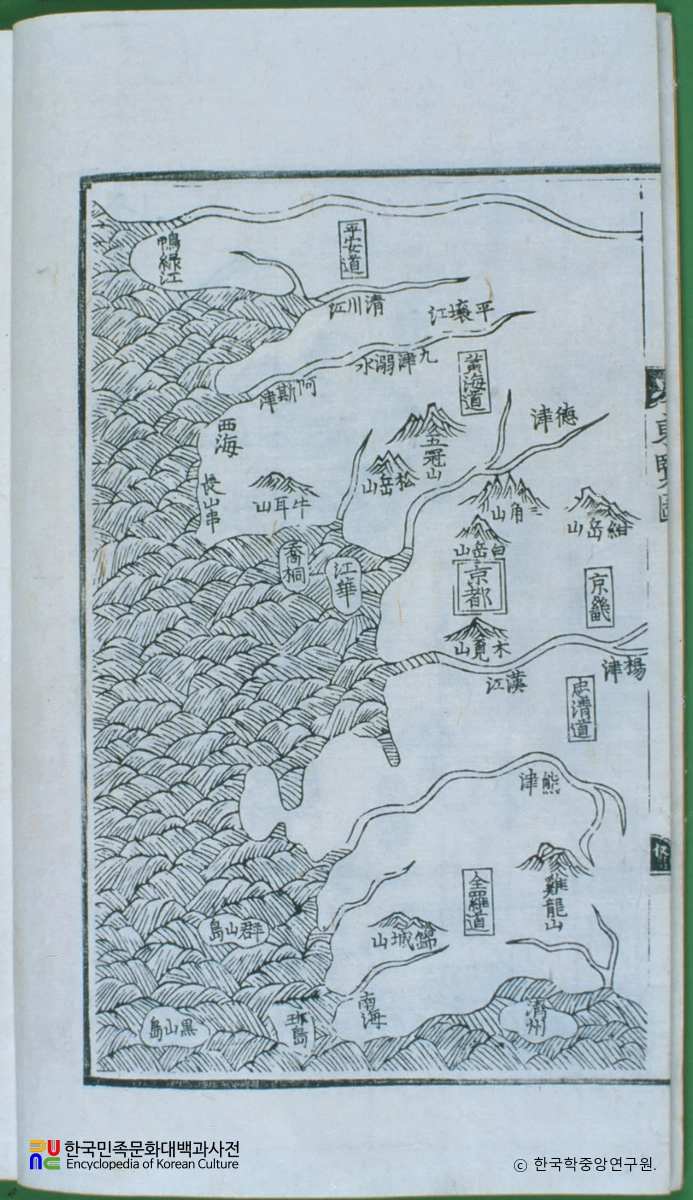 鴨綠江
平安道
清川江
平壤江
九津溺水
阿斯津
黃海道
德津
西海
五冠山
松岳山
牛耳山
長山串
三角山
紺岳山
白岳山
喬桐
江華
京都
京畿
木覓山
楊津
漢江
忠清道
熊津
雞龍山
全羅道
錦城山
群山島
南海
濟州
黑山島
東覽圖
한국민족문화대백과사전
Encyclopedia of Korean Culture
ⓒ 한국학중앙연구원.